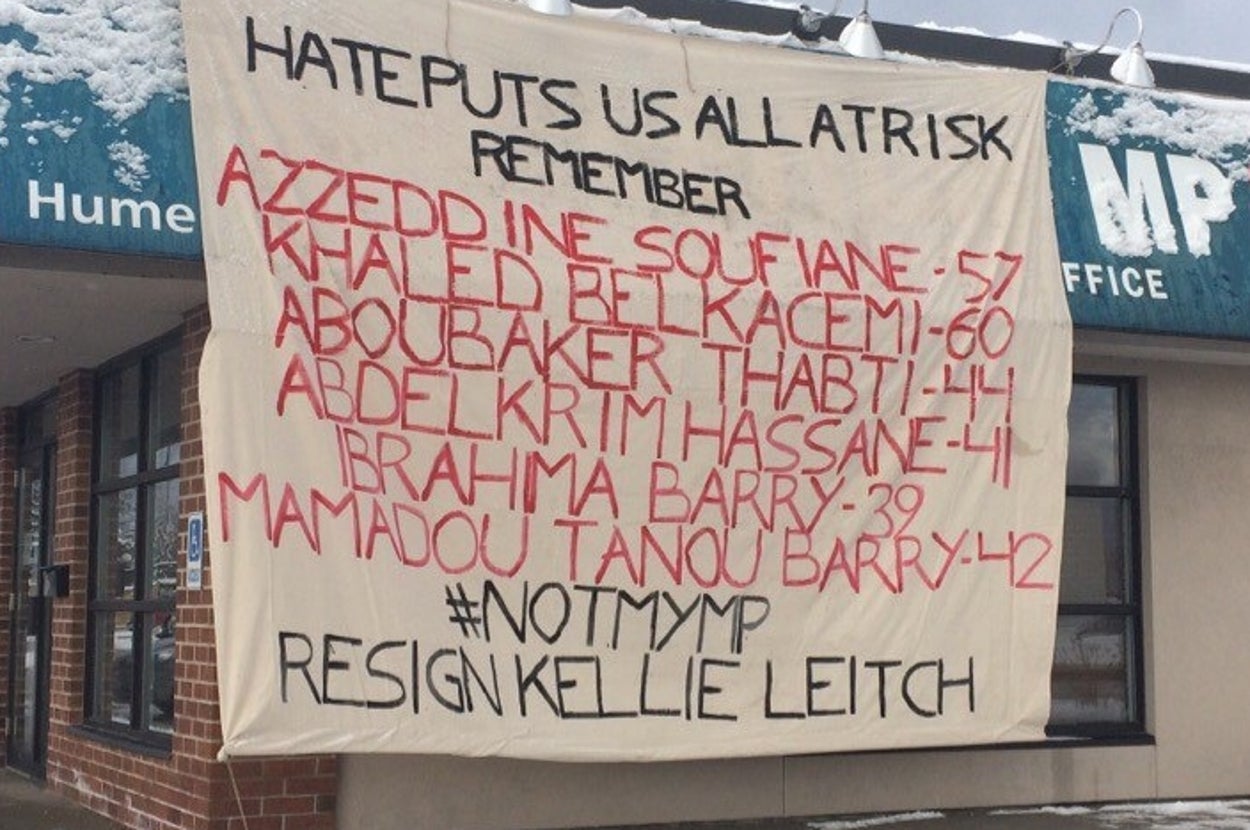 HATE PUTS US ALL AT RISK
REMEMBER
AZZEDDINE SOUFIANE - 57
KHALED BELKACEMI - 60
ABOUBAKER THABTI - 44
ABDELKRIM HASSANE - 41
IBRAHIMA BARRY - 39
MAMADOU TANOU BARRY - 42
#NOTMYMP
RESIGN KELLIE LEITCH
Hume
MP
FFICE